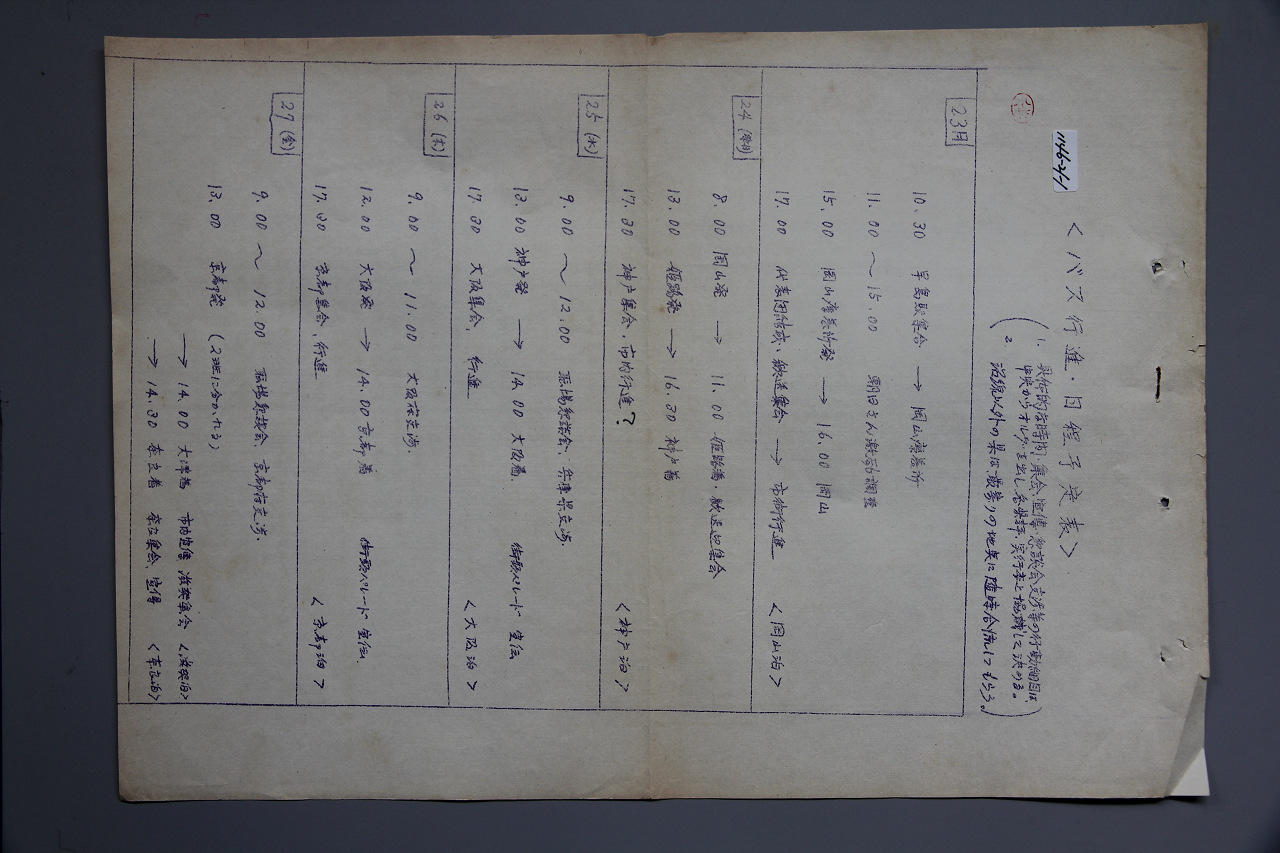 1146-2/1
<バス行進・日程予定表>
1. 具体的な時間、集会、宣伝、懇談会、交渉等の行動細目は
中央からオルグを出し各県評、実行委と協議して決める。
2. 沿線以外の県は最寄りの地点に随時合流してもらう。
23月
10.30 早島駅集合 → 岡山療養所
11.00 〜 15.00 朝日さん激励、調理
15.00 岡山療養所発 → 16.00 岡山
17.00 代表団結成、歓送集会 → 市街行進 <岡山泊>
24
8.00 岡山発 → 11.00 姫路着・歓送迎集会
13.00 姫路発 → 16.30 神戸着
17.30 神戸集会、市内行進? <神戸泊>
25(水)
9.00 〜 12.00 職場懇談会、兵庫県交渉.
13.00 神戸発 → 14.00 大阪着. 街頭パレード宣伝
17.30 大阪集会、行進 <大阪泊>
26(木)
9.00 〜 11.00 大阪府交渉.
12.00 大阪発 → 14.00 京都着 街頭パレード宣伝.
17.30 京都集会、行進 <京都泊>
27(金)
9.00 〜 12.00 職場懇談会、京都府交渉.
13.00 京都発 (2班に分かれる)
→ 14.00 大津着 市内宣伝 滋賀集会 <滋賀泊>
→ 14.30 奈良着 奈良集会、宣伝 <奈良泊>